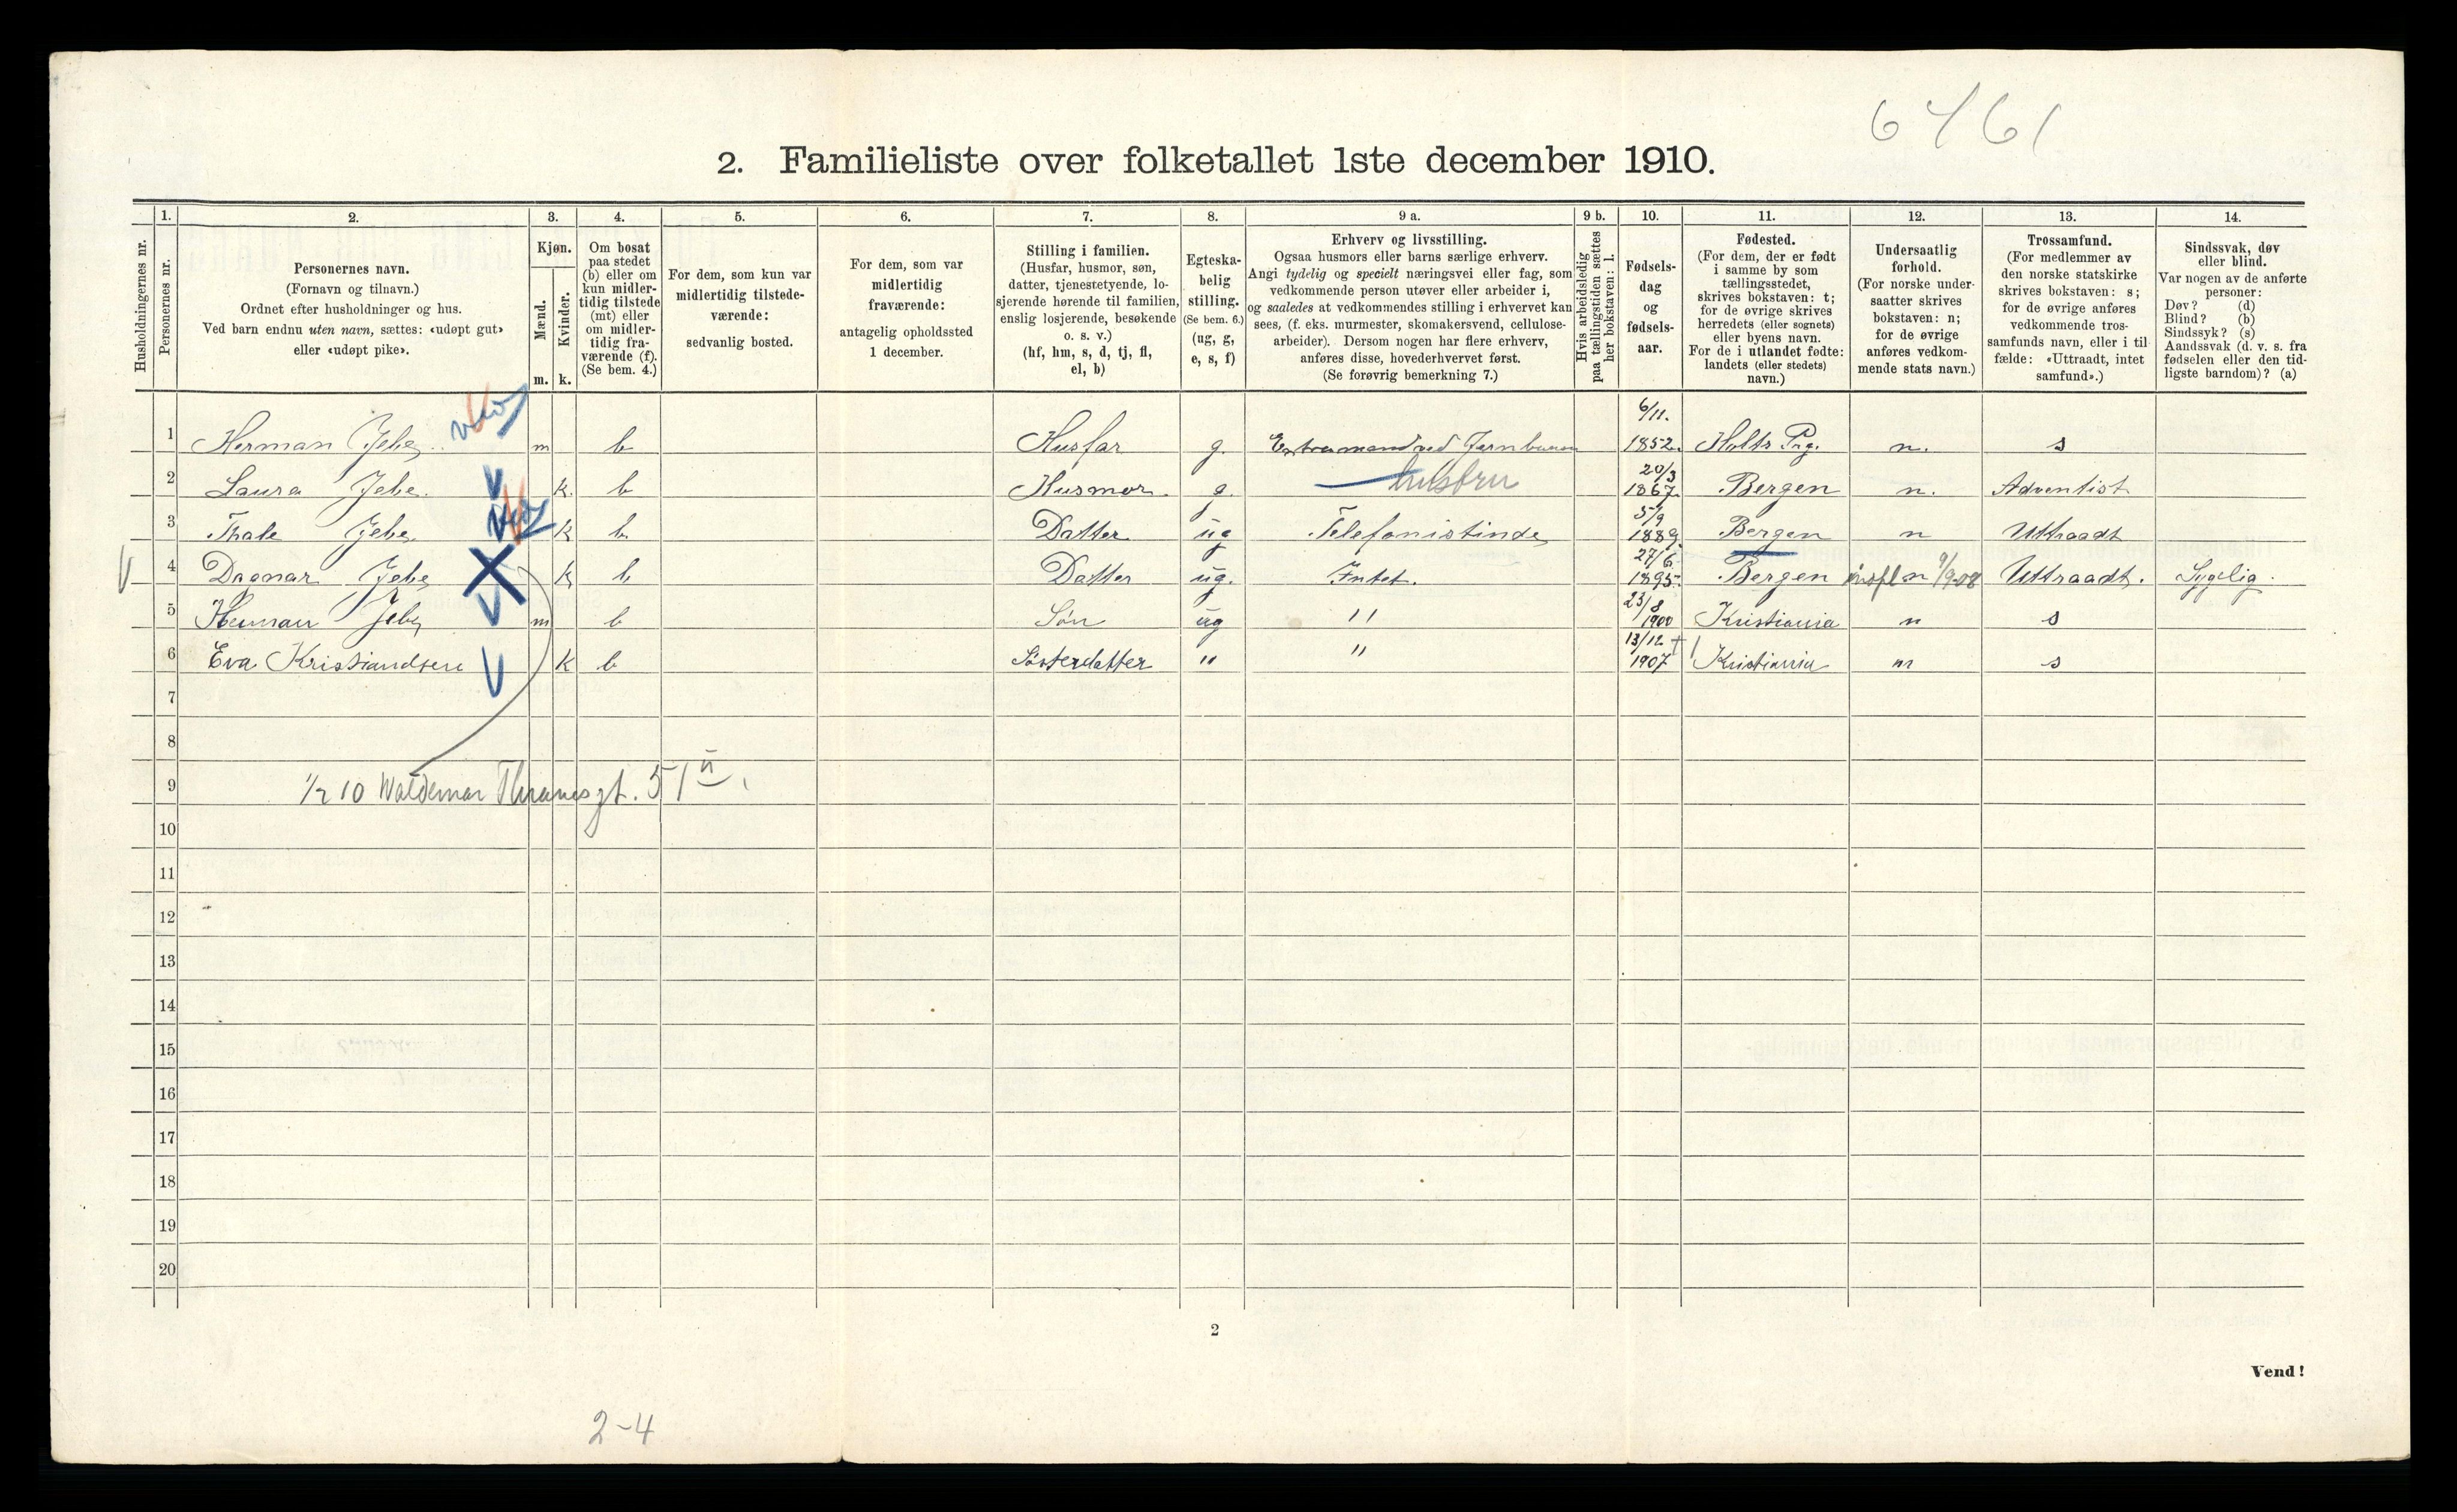 6761
2. Familieliste over folketallet 1ste december 1910.
Husholdningernes nr.
1. Personernes nr.
2. Personernes navn.
(Fornavn og tilnavn.)
Ordnet efter husholdninger og hus.
Ved barn endnu uten navn, sættes: «udøpt gut»
eller «udøpt pike».
3. Kjøn.
Mænd. m.
Kvinder. k.
4. Om bosat
paa stedet
(b) eller om
kun midler-
tidig tilstede
(mt) eller
om midler-
tidig fra-
værende (f).
(Se bem. 4.)
5. For dem, som kun var
midlertidig tilstede-
værende:
sedvanlig bosted.
6. For dem, som var
midlertidig
fraværende:
antagelig opholdssted
1 december.
7. Stilling i familien.
(Husfar, husmor, søn,
datter, tjenestetyende, lo-
sjerende hørende til familien,
enslig losjerende, besøkende
o. s. v.)
(hf, hm, s, d, tj, fl,
el, b)
8. Egteska-
belig
stilling.
(Se bem. 6.)
(ug, g,
e, s, f)
9 a. Erhverv og livsstilling.
Ogsaa husmors eller barns særlige erhverv.
Angi tydelig og specielt næringsvei eller fag, som
vedkommende person utøver eller arbeider i,
og saaledes at vedkommendes stilling i erhvervet kan
sees, (f. eks. murmester, skomakersvend, cellulose-
arbeider). Dersom nogen har flere erhverv,
anføres disse, hovederhvervet først.
(Se forøvrig bemerkning 7.)
9 b. Hvis arbeidsledig
paa tællingstiden sættes
her bokstaven: l.
10. Fødsels-
dag
og
fødsels-
aar.
11. Fødested.
(For dem, der er født
i samme by som
tællingsstedet,
skrives bokstaven: t;
for de øvrige skrives
herredets (eller sognets)
eller byens navn.
For de i utlandet fødte:
landets (eller stedets)
navn.)
12. Undersaatlig
forhold.
(For norske under-
saatter skrives
bokstaven: n;
for de øvrige
anføres vedkom-
mende stats navn.)
13. Trossamfund.
(For medlemmer av
den norske statskirke
skrives bokstaven: s;
for de øvrige anføres
vedkommende tros-
samfunds navn, eller i til
fælde: «Uttraadt, intet
samfund».)
14. Sindssvak, døv
eller blind.
Var nogen av de anførte
personer:
Døv? (d)
Blind? (b)
Sindssyk? (s)
Aandssvak (d. v. s. fra
fødselen eller den tid-
ligste barndom)? (a)
1 Herman Jebe m b Husfar g. Extramand ved Jernbanen 6/11. 1852. Holts Prg. n. s
2 Laura Jebe. k. b Husmor. g. Hustru 20/3 1867. Bergen n. Adventist
3 Thale Jebe k b Datter ug Telefonistinde 5/9 1889. Bergen n Uttraadt
4 Dagmar Jebe k b Datter ug. Intet. 27/6 1895. Bergen n 9/9-08 Uttraadt. Sygelig.
5 Herman Jebe m b Søn ug " 23/8 1900 Kristiania n s
6 Eva Kristiandsen k b Søsterdatter " " 13/12 1907 Kristiania n s
7
8
9 1/2 10 Waldemar Thranes gt. 51 II.
10
11
12
13
14
15
16
17
18
19
20
2
Vend!
2-4